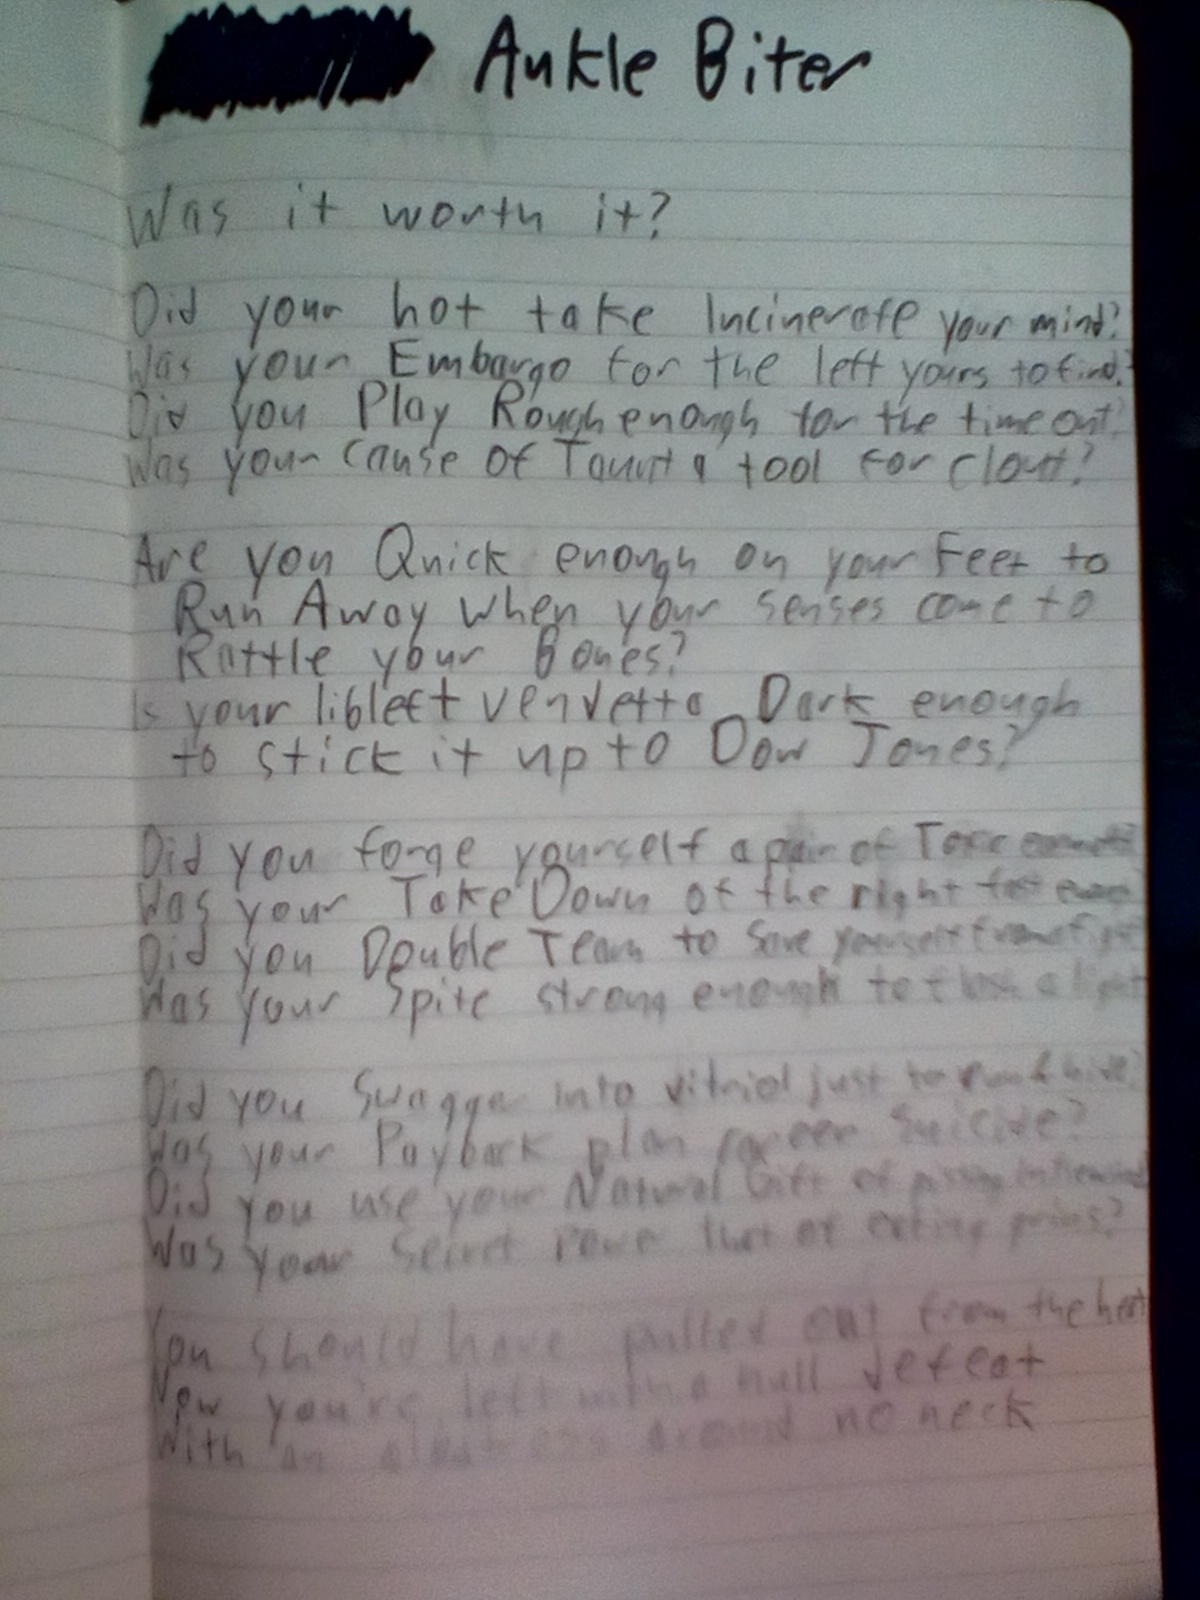 Ankle Biter
Was it worth it?
Did your hot take Incinerate your mind?
Was your Embargo for the left yours to find?
Did you Play Rough enough for the time out?
Was your cause of Taunt a tool for clout?
Are you Quick enough on your Feet to
Run Away when your senses come to
Rattle your Bones?
Is your libleft vendetta Dark enough
to stick it up to Dow Jones?
Did you forge yourself a pair of
Was your Take Down of the right
Did you Double Team to save yourself
Was your Spite strong enough to flash a light
Did you Swagger into vitriol just to run & hide?
Was your Payback plan career suicide?
Did you use your Natural Gift of pissing in the wind
Was your Secret Power that of
You should have pulled out from the heat
Now you're left with a null defeat
With an around no neck